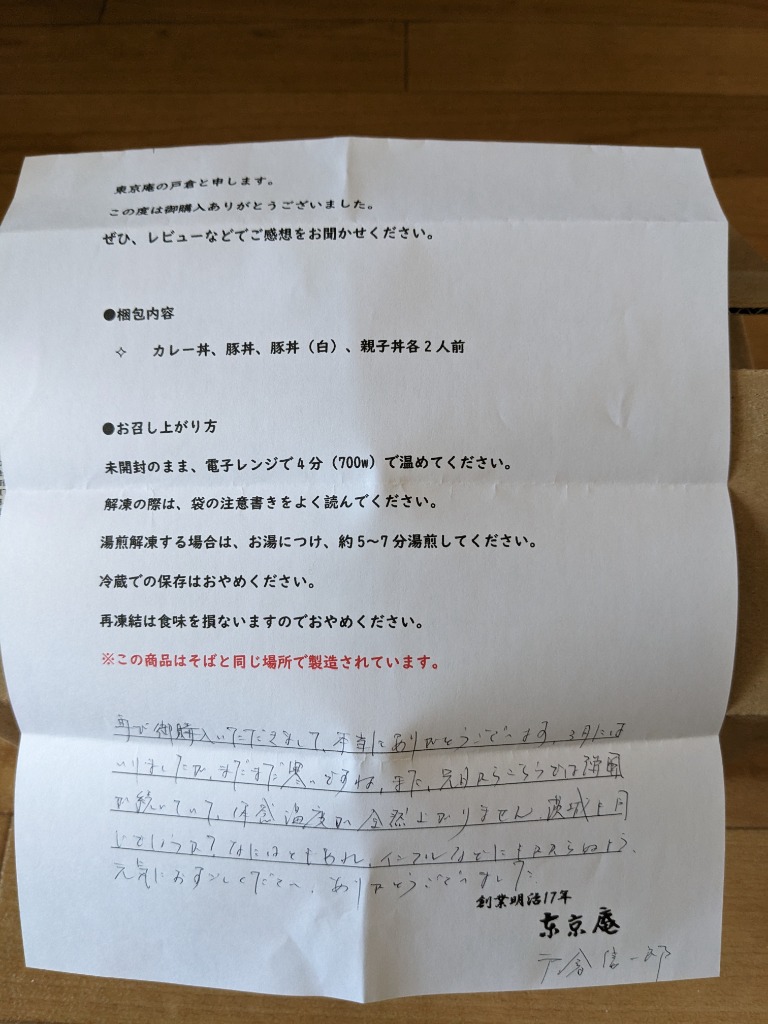 東京庵の戸倉と申します。
この度は御購入ありがとうございました。
ぜひ、レビューなどでご感想をお聞かせください。
●梱包内容
✧ カレー丼、豚丼、豚丼（白）、親子丼各2人前
●お召し上がり方
未開封のまま、電子レンジで4分（700w）で温めてください。
解凍の際は、袋の注意書きをよく読んでください。
湯煎解凍する場合は、お湯につけ、約5～7分湯煎してください。
冷蔵での保存はおやめください。
再凍結は食味を損ないますのでおやめください。
※この商品はそばと同じ場所で製造されています。
再び御購入いただきまして、本当にありがとうございます。3月には
いりましたが、まだまだ寒いですね。また、先日からこちらでは強風
が続いていて、体感温度が全然上がりません。茨城も同
じでしょうか？なにはともあれ、インフルなどにかからぬよう、
元気におすごしください。ありがとうございました。
創業明治17年
东京庵
戸倉信一郎